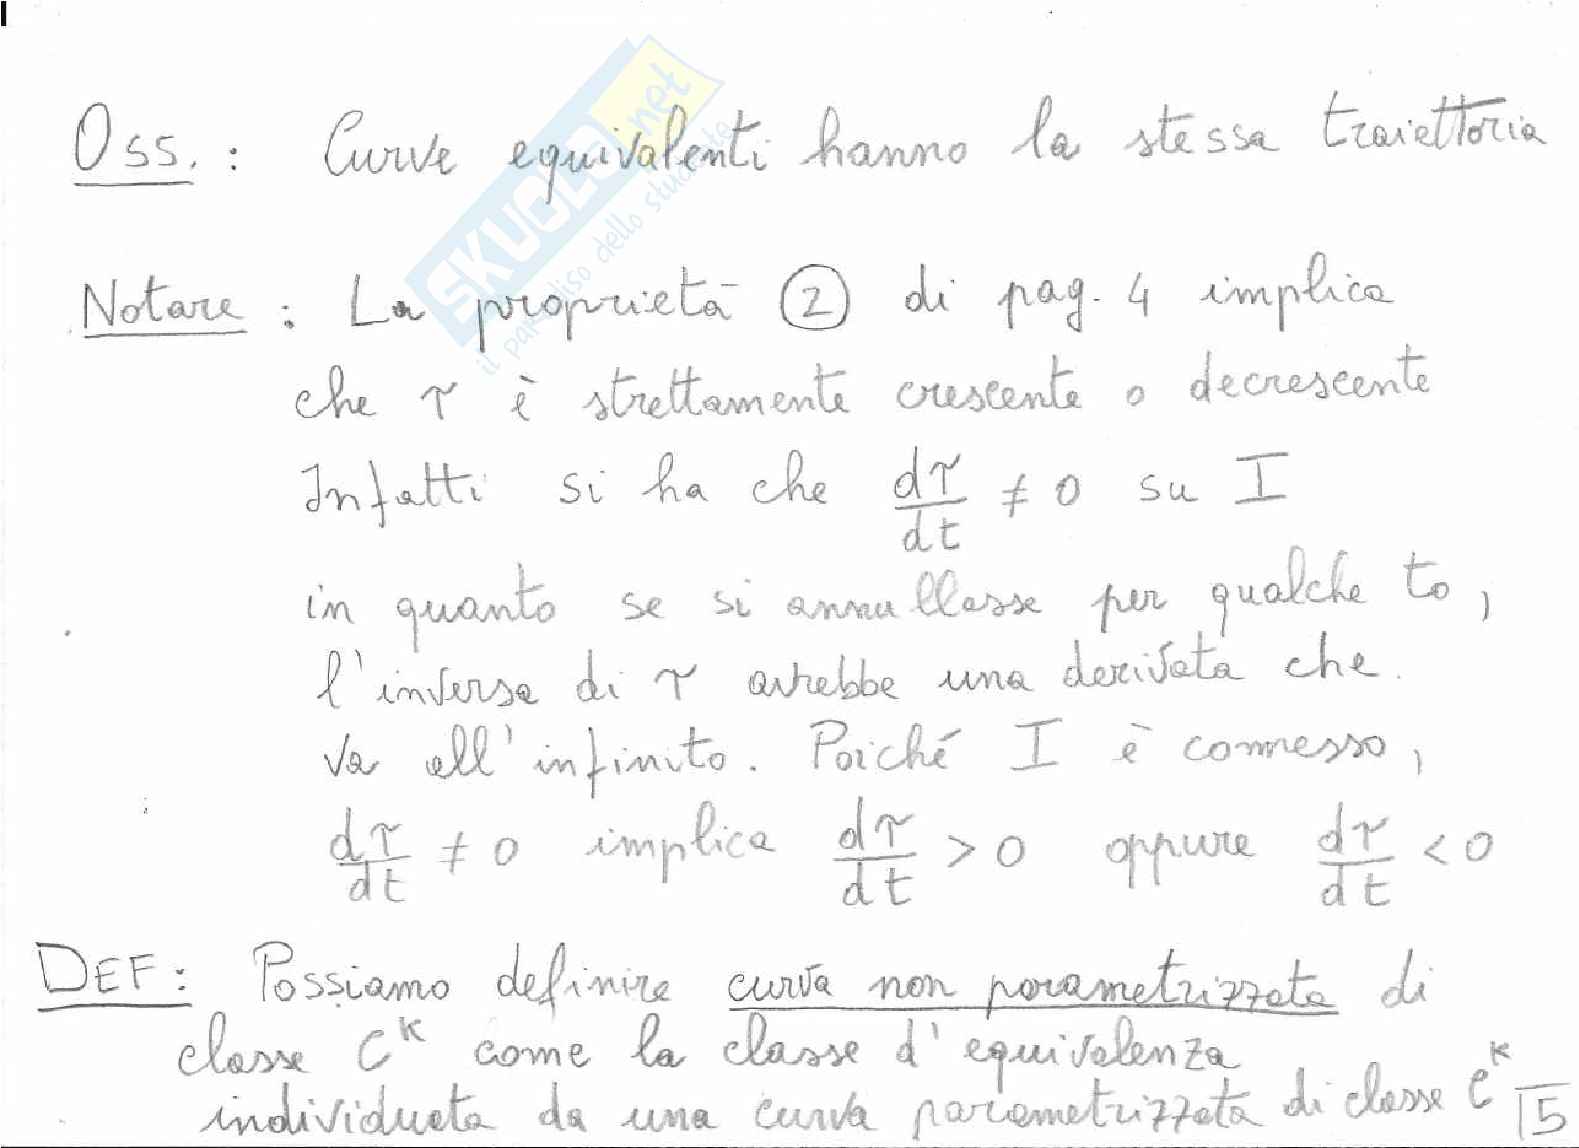 Oss. : Curve equivalenti hanno la stessa traiettoria
Notare : La proprietà ② di pag. 4 implica
che τ è strettamente crescente o decrescente
Infatti si ha che dτ/dt ≠ 0 su I
in quanto se si annullasse per qualche to,
l'inversa di τ avrebbe una derivata che
va all'infinito. Poiché I è connesso,
dτ/dt ≠ 0 implica dτ/dt > 0 oppure dτ/dt < 0
DEF: Possiamo definire curva non parametrizzata di
classe C^K come la classe d'equivalenza
individuata da una curva parametrizzata di classe C^K
15
SKUOLA.net
il paradiso dello studente